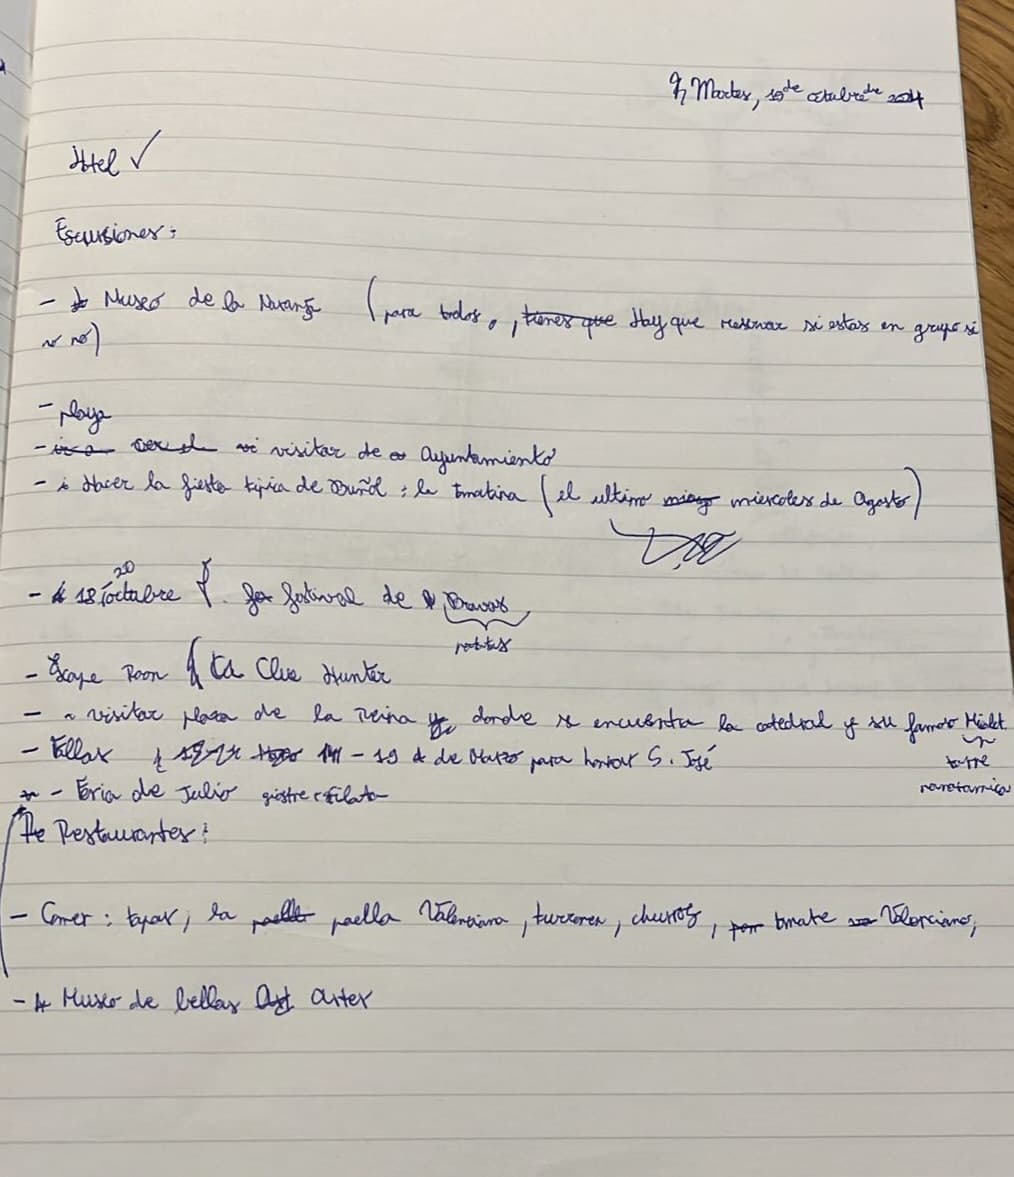 Martes, 10 de octubre de 2024
Hotel ✓
Escursiones:
- Museo de la Naranja (para todos, tienes que Hay que reservar si estas en grupo si
no no)
- playa
- visitar de Ayuntamiento
- Hacer la fiesta tipica de Buñol : la tomatina (el ultimo miercoles de Agosto)
- 18/20 octubre festival de Bravas
patatas
- Scape Room { Clue Hunter
- visitar plaza de la Reina donde se encuentra la catedral y su famoso Mickelet
torre
- Fallas - 19 de Marzo para honrar S. José
- Feria de Julio giostre e sfilata
Restaurantes:
- Comer : tapas, la paella paella Valenciana, turrones, churros, tomate Valenciano,
- Museo de bellas Artes